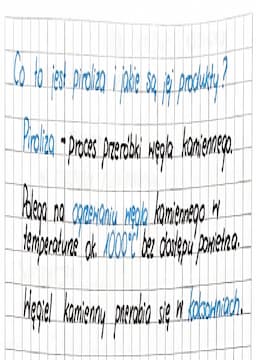 Co to jest piroliza i jakie są jej produkty?
Piroliza - proces przeróbki węgla kamiennego.
Polega na ogrzewaniu węgla kamiennego w
temperaturze ok. 1000°C bez dostępu powietrza.
Węgiel kamienny przerabia się w koksowniach.